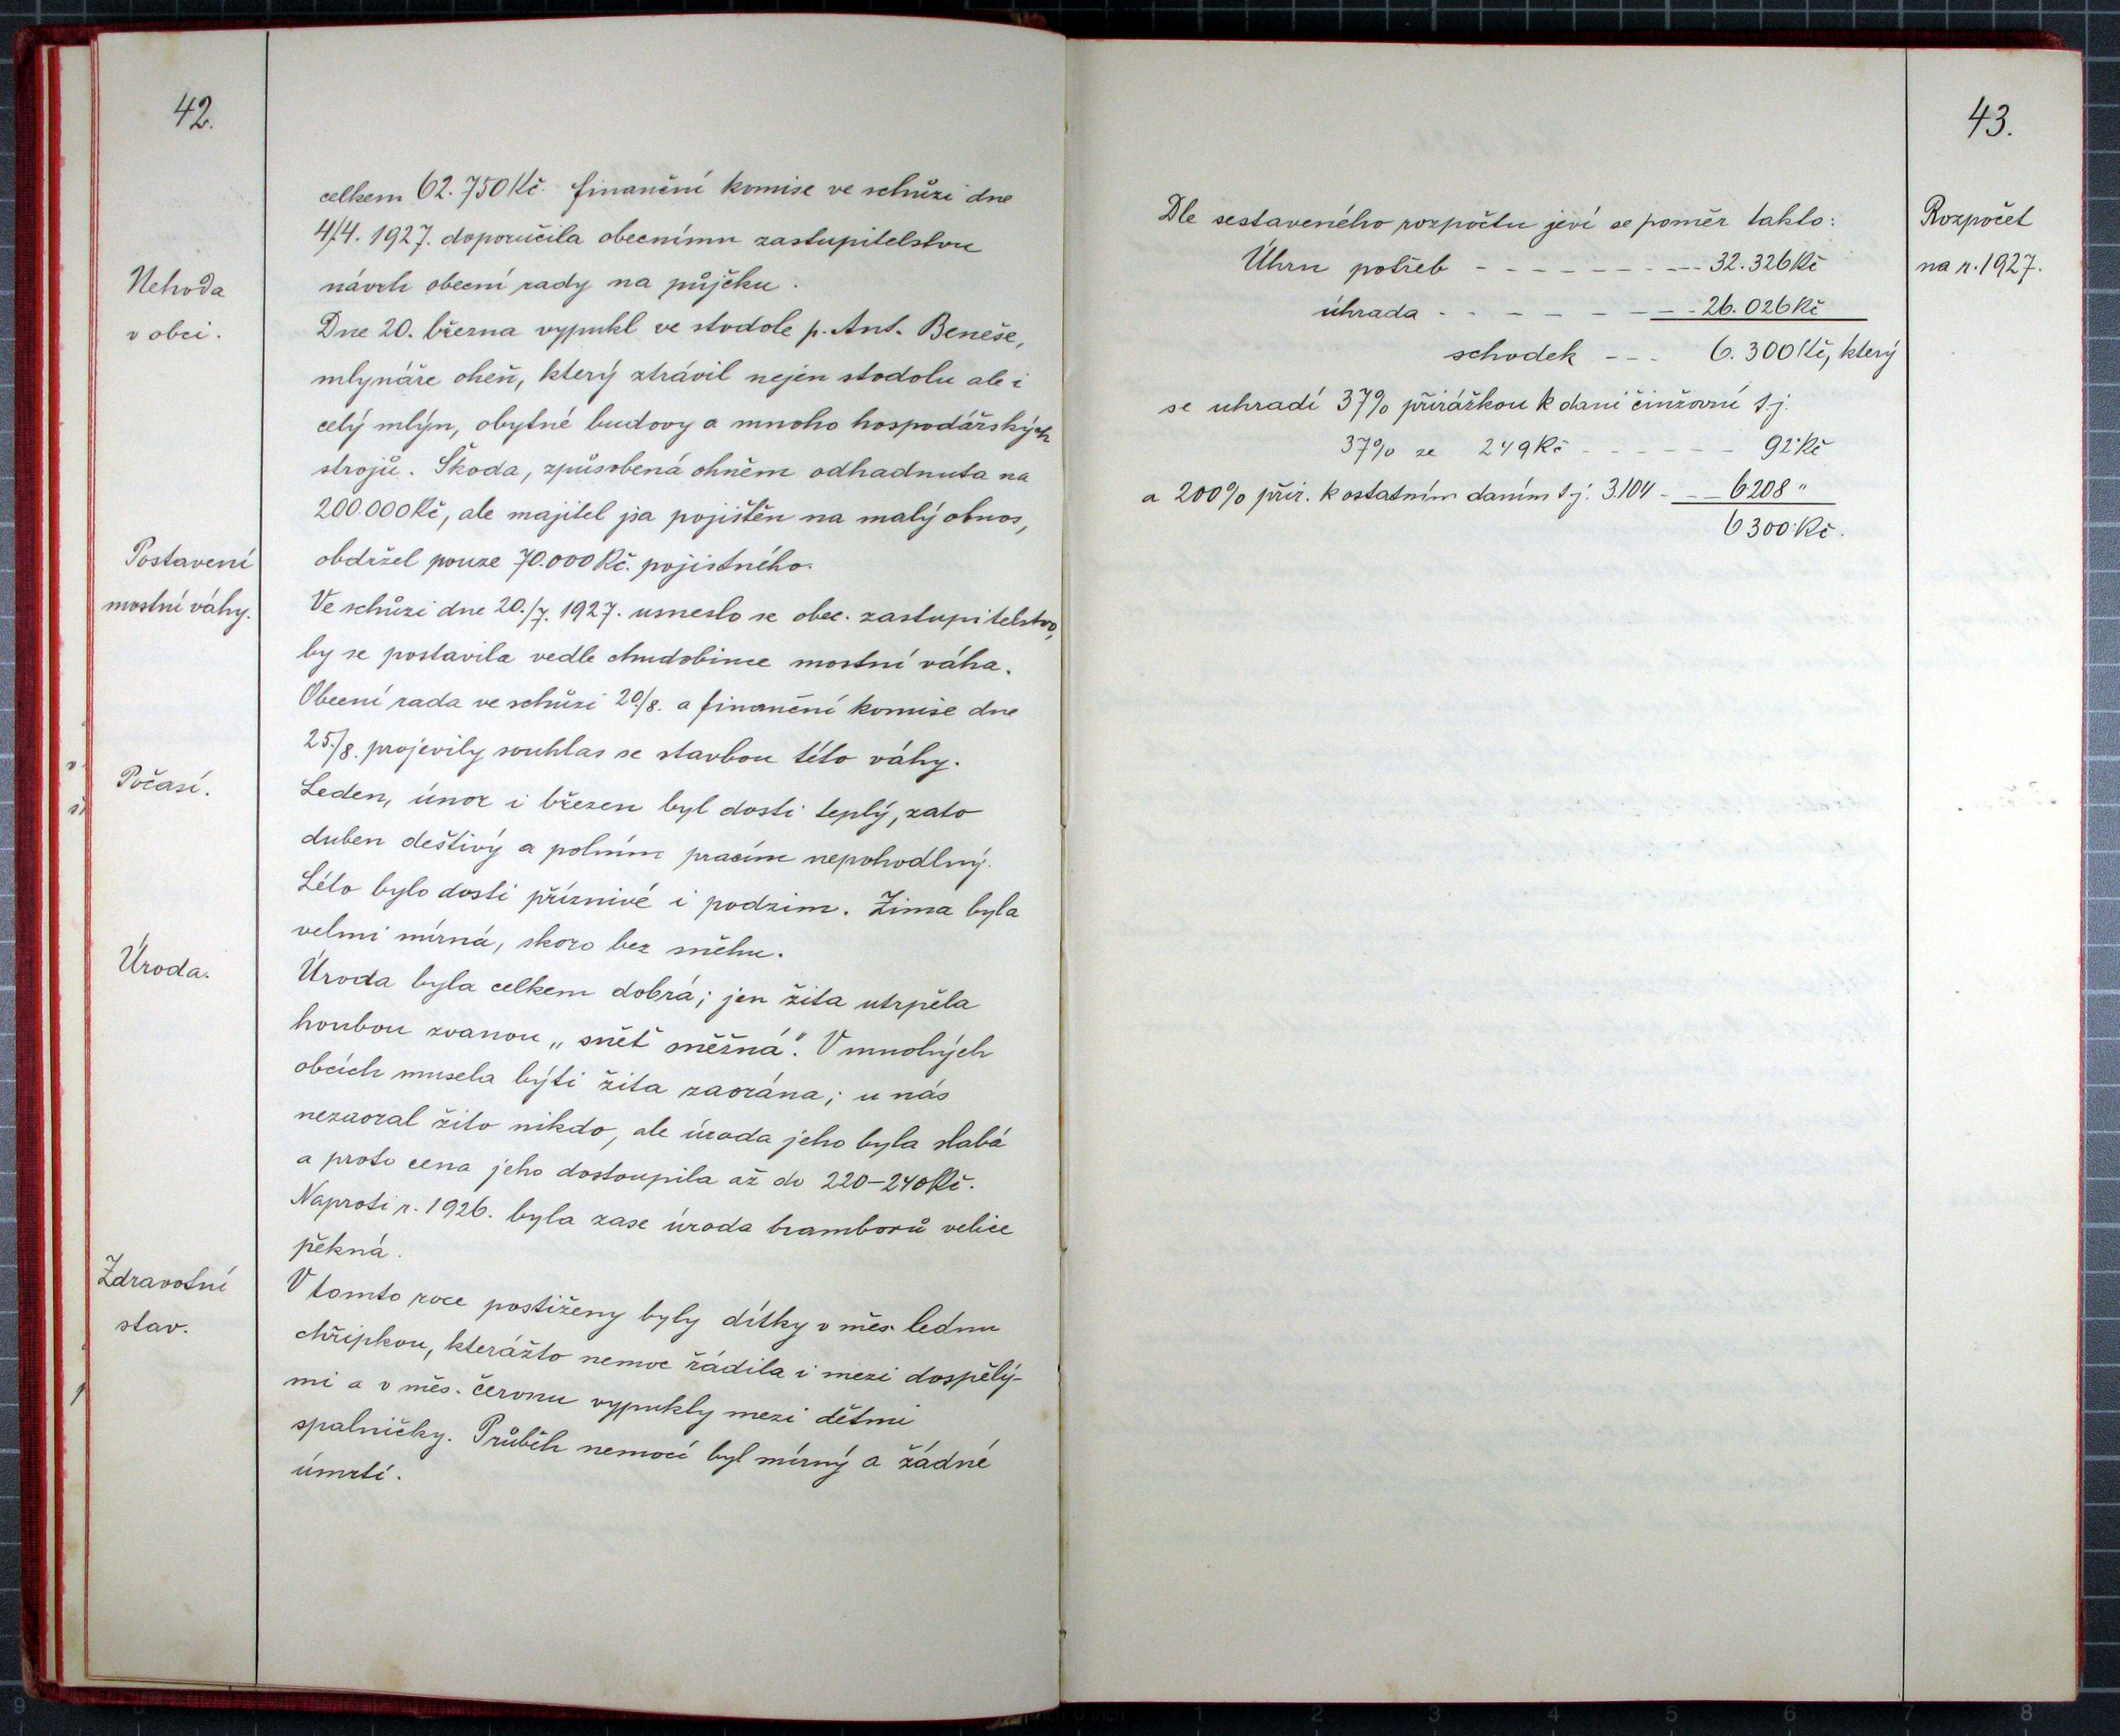 42.
celkem 62.750 Kč. finanční komise ve schůzi dne
4/4. 1927. doporučila obecnímu zastupitelstvu
návrh obecní rady na půjčku.
Nehoda
v obci.
Dne 20. března vypukl ve stodole p. Ant. Beneše,
mlynáře oheň, který ztrávil nejen stodolu ale i
celý mlýn, obytné budovy a mnoho hospodářských
strojů. Škoda, způsobená ohněm odhadnuta na
200.000 Kč, ale majitel jsa pojištěn na malý obnos,
obdržel pouze 70.000 Kč. pojistného.
Postavení
mostní váhy.
Ve schůzi dne 20./7. 1927. usneslo se obec. zastupitelstvo,
by se postavila vedle chudobince mostní váha.
Obecní rada ve schůzi 20./8. a finanční komise dne
25./8. projevily souhlas se stavbou této váhy.
Počasí.
Leden, únor i březen byl dosti teplý, zato
duben deštivý a polním pracím nepohodlný.
Léto bylo dosti příznivé i podzim. Zima byla
velmi mírná, skoro bez sněhu.
Úroda.
Úroda byla celkem dobrá; jen žita utrpěla
houbou zvanou „snět sněžná". V mnohých
obcích musela býti žita zaorána; u nás
nezaoral žito nikdo, ale úroda jeho byla slabá
a proto cena jeho dostoupila až do 220–240 Kč.
Naproti r. 1926. byla zase úroda bramborů velice
pěkná.
Zdravotní
stav.
V tomto roce postiženy byly dítky v měs. lednu
chřipkou, kterážto nemoc řádila i mezi dospělý-
mi a v měs. červnu vypukly mezi dětmi
spalničky. Průběh nemocí byl mírný a žádné
úmrtí.
43.
Rozpočet
na r. 1927.
Dle sestaveného rozpočtu jeví se poměr takto:
Úhrn potřeb - - - - - - - - - 32.326 Kč
úhrada - - - - - - - - - 26.026 Kč
schodek - - - 6.300 Kč, který
se uhradí 37% přirážkou k dani činžovní t.j.
37% ze 249 Kč - - - - - - 92 Kč
a 200% přir. k ostatním daním t.j. 3.104 - - - 6208 "
6300 Kč.